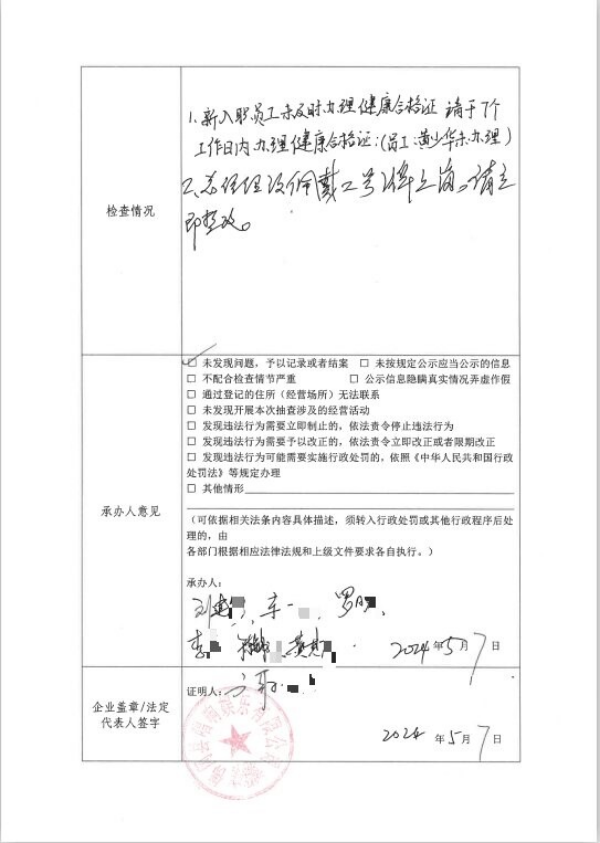 检查情况
1、新入职员工未及时办理健康合格证 请于7个
工作日内办理健康合格证；(员工：黄少华未办理)
2、总经理没佩戴工号牌上岗。请立
即整改。
承办人意见
☑ 未发现问题，予以记录或者结案 □ 未按规定公示应当公示的信息
□ 不配合检查情节严重 □ 公示信息隐瞒真实情况弄虚作假
□ 通过登记的住所（经营场所）无法联系
□ 未发现开展本次抽查涉及的经营活动
□ 发现违法行为需要立即制止的，依法责令停止违法行为
□ 发现违法行为需要予以改正的，依法责令立即改正或者限期改正
□ 发现违法行为可能需要实施行政处罚的，依照《中华人民共和国行政
处罚法》等规定办理
□ 其他情形
（可依据相关法条内容具体描述，须转入行政处罚或其他行政程序后处
理的，由
各部门根据相应法律法规和上级文件要求各自执行。）
承办人：
刘 车 罗
李 黄 2024年5月7日
企业盖章/法定
代表人签字
证明人：
2024年5月7日
有限公司